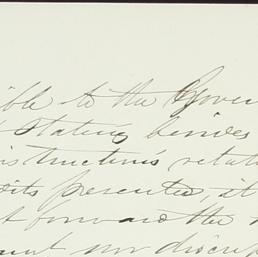 ible to the Gover
t stating besides
instructions relat
its presented, it
t forward the
nt nor discre